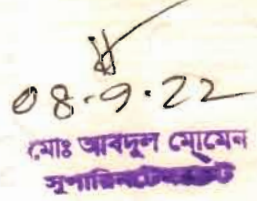 08.9.22
মোঃ আবদুল মোমেন
সুপারিনটেনডেন্ট